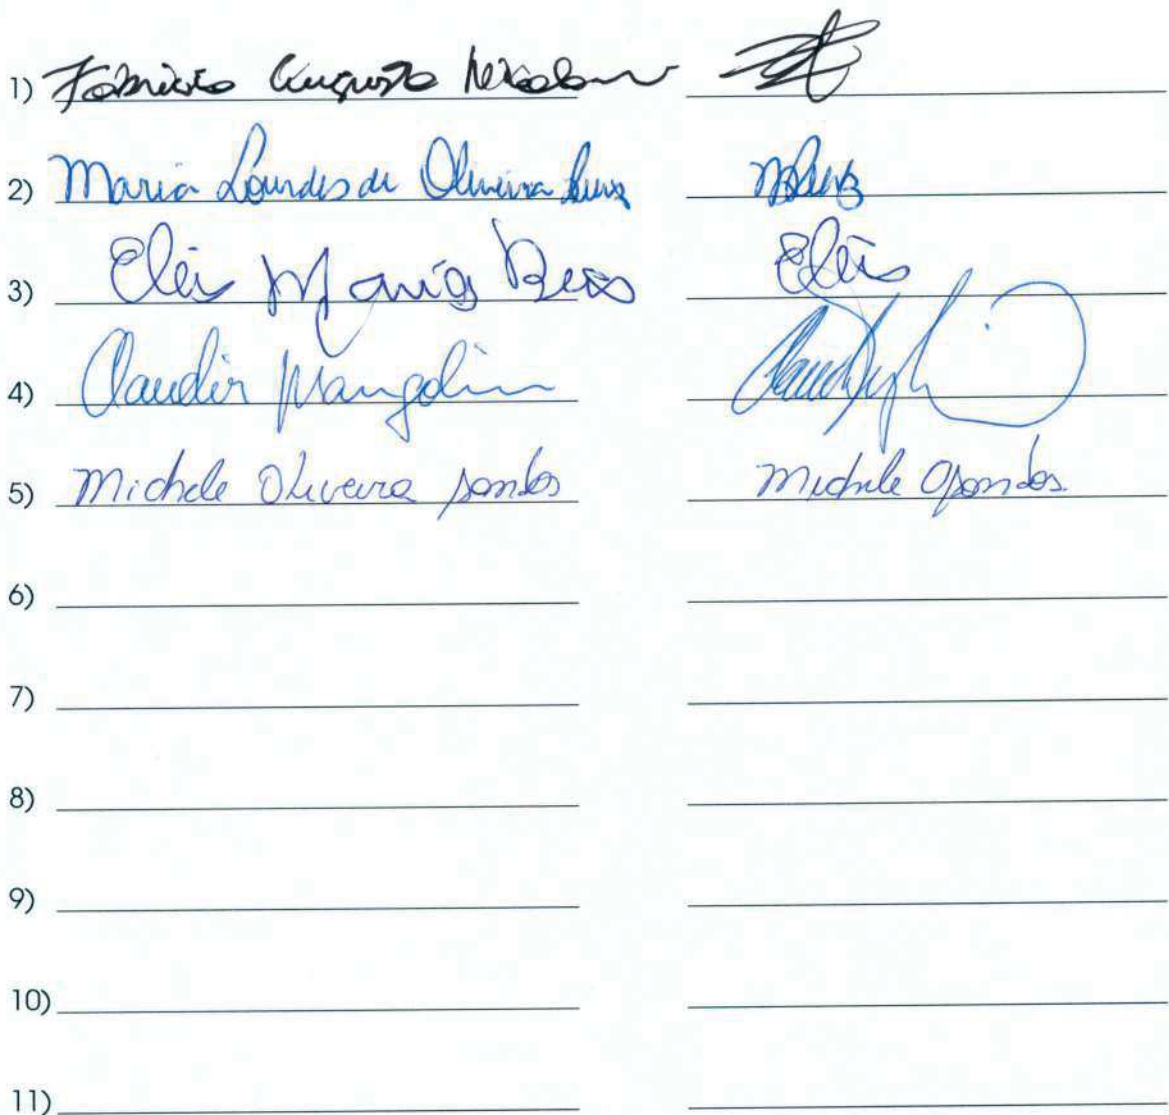 1) Fabricio Augusto
2) Maria Lourdes de Oliveira
3) Maria Elis
4) Claudir Mangolim
5) Michele Oliveira Santos Michele OSantos
6)
7)
8)
9)
10)
11)